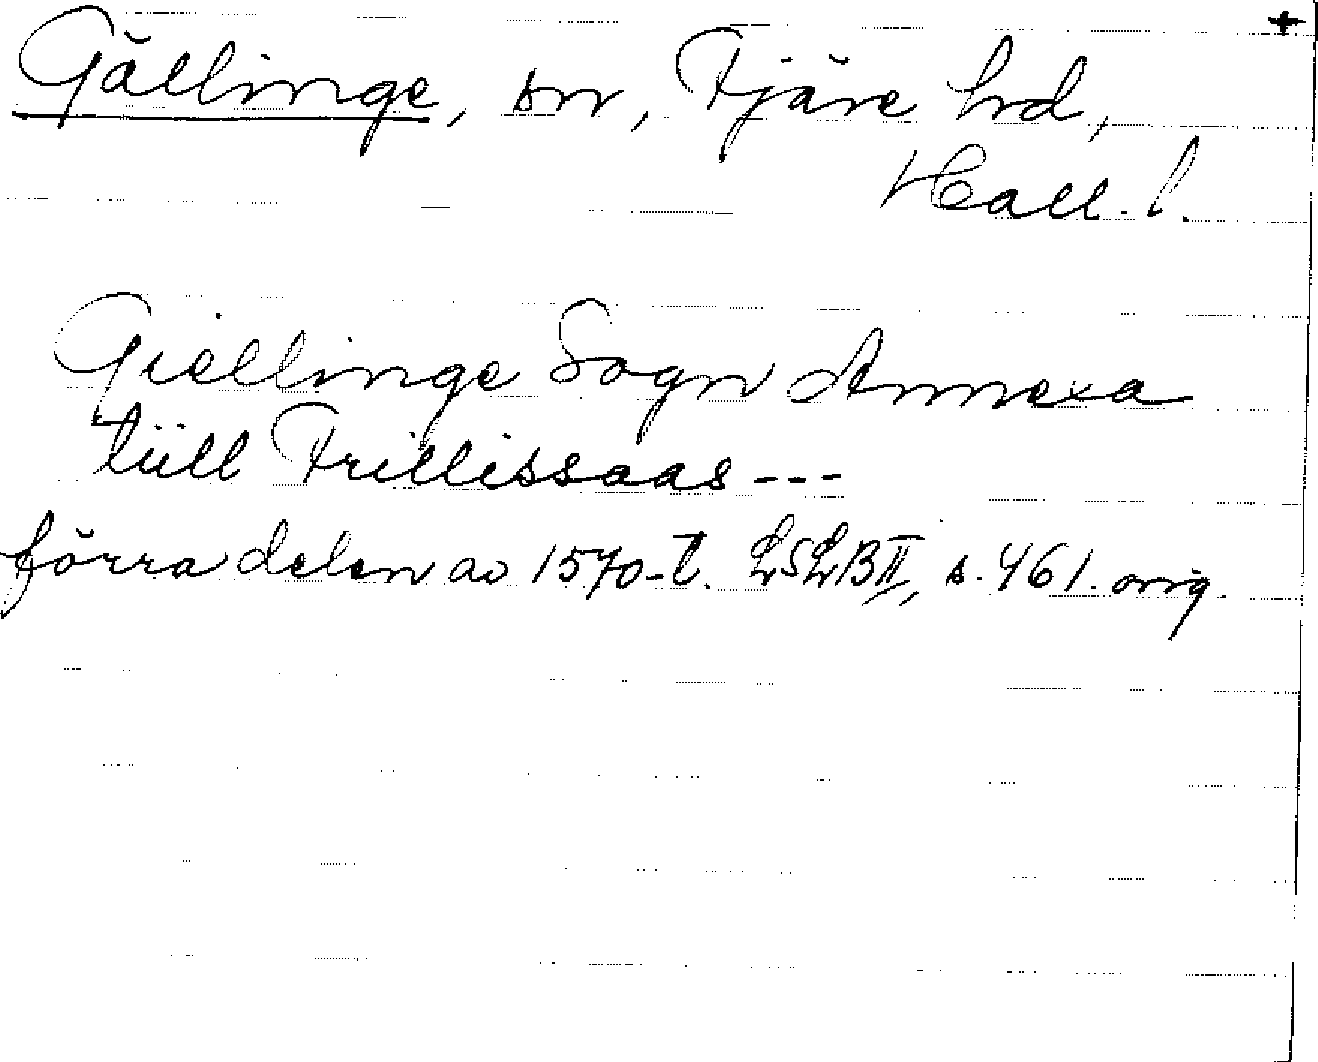 +
Gällinge, sn, Fjäre hrd,
Hall. l.
Giellinge Sogn Annexa
tüll Frillissaas ---
förra delen av 1570-t. LSLB II, s. 461. orig.